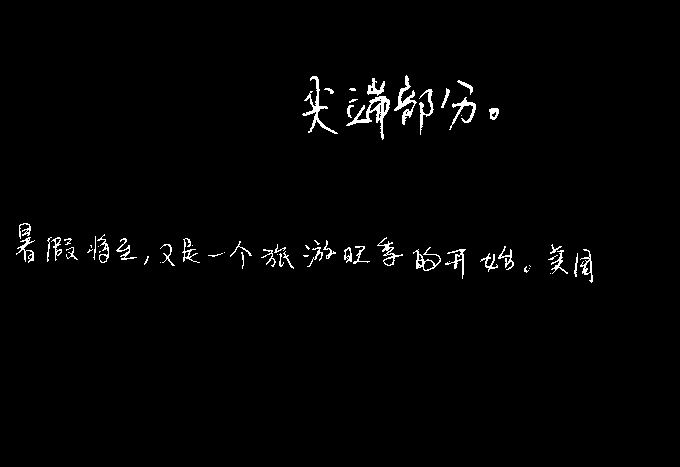 尖端部分。
暑假将至,又是一个旅游旺季的开始。美国